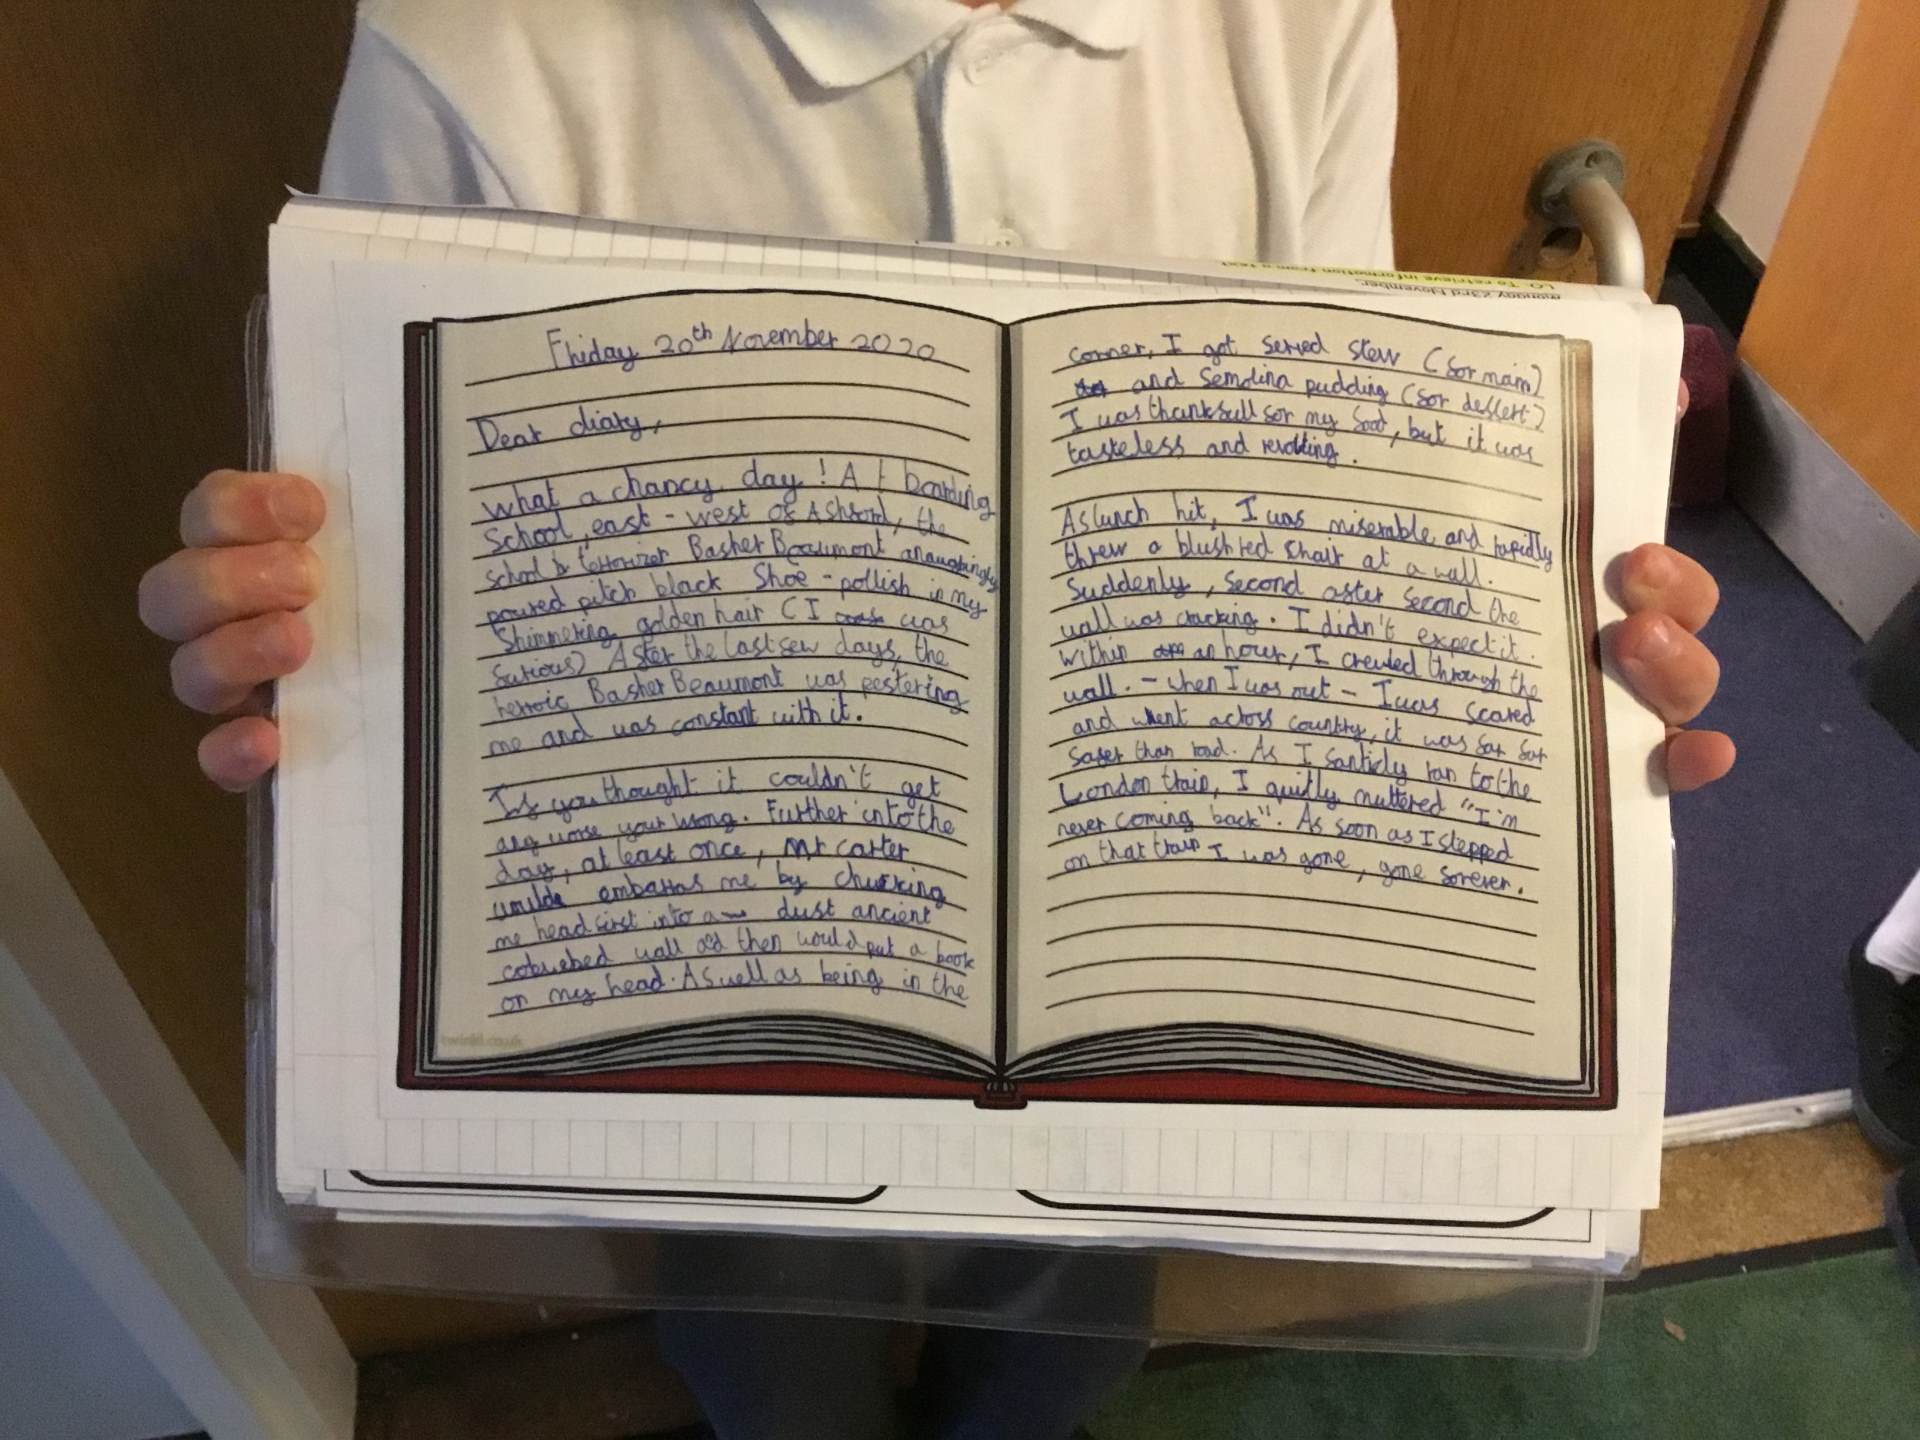 Monday 23rd November
LO: To retrieve information from a text
Friday 20th November 2020
Dear diary,
what a chancy day! At boarding
School, east-west of Ashford, the
school terrorizer Basher Beaumont
poured pitch black Shoe-pollish in my
Shimmering golden hair (I was
furious) After the last few days, the
herroic Basher Beaumont was pestering
me and was constant with it.
If you thought it couldn't get
any worse your wrong. Further into the
day, at least once, Mr carter
embarras me by chucking
me head first into a dust ancient
wall and then would put a book
on my head. As well as being in the
corner, I got served stew (for main)
and Semolina pudding (for dessert)
I was thankfull for my food, but it was
tasteless and revolting.
As lunch hit, I was miserable and rapidly
threw a blush red chair at a wall.
Suddenly, Second after Second the
wall was cracking. I didn't expect it.
within an hour, I crewled through the
wall. - when I was out - I was scared
and went across country, it was far far
safer than road. As I ran to the
London train, I quitly muttered "I'm
never coming back". As soon as I stepped
on that train I was gone, gone forever.
twinkl.co.uk